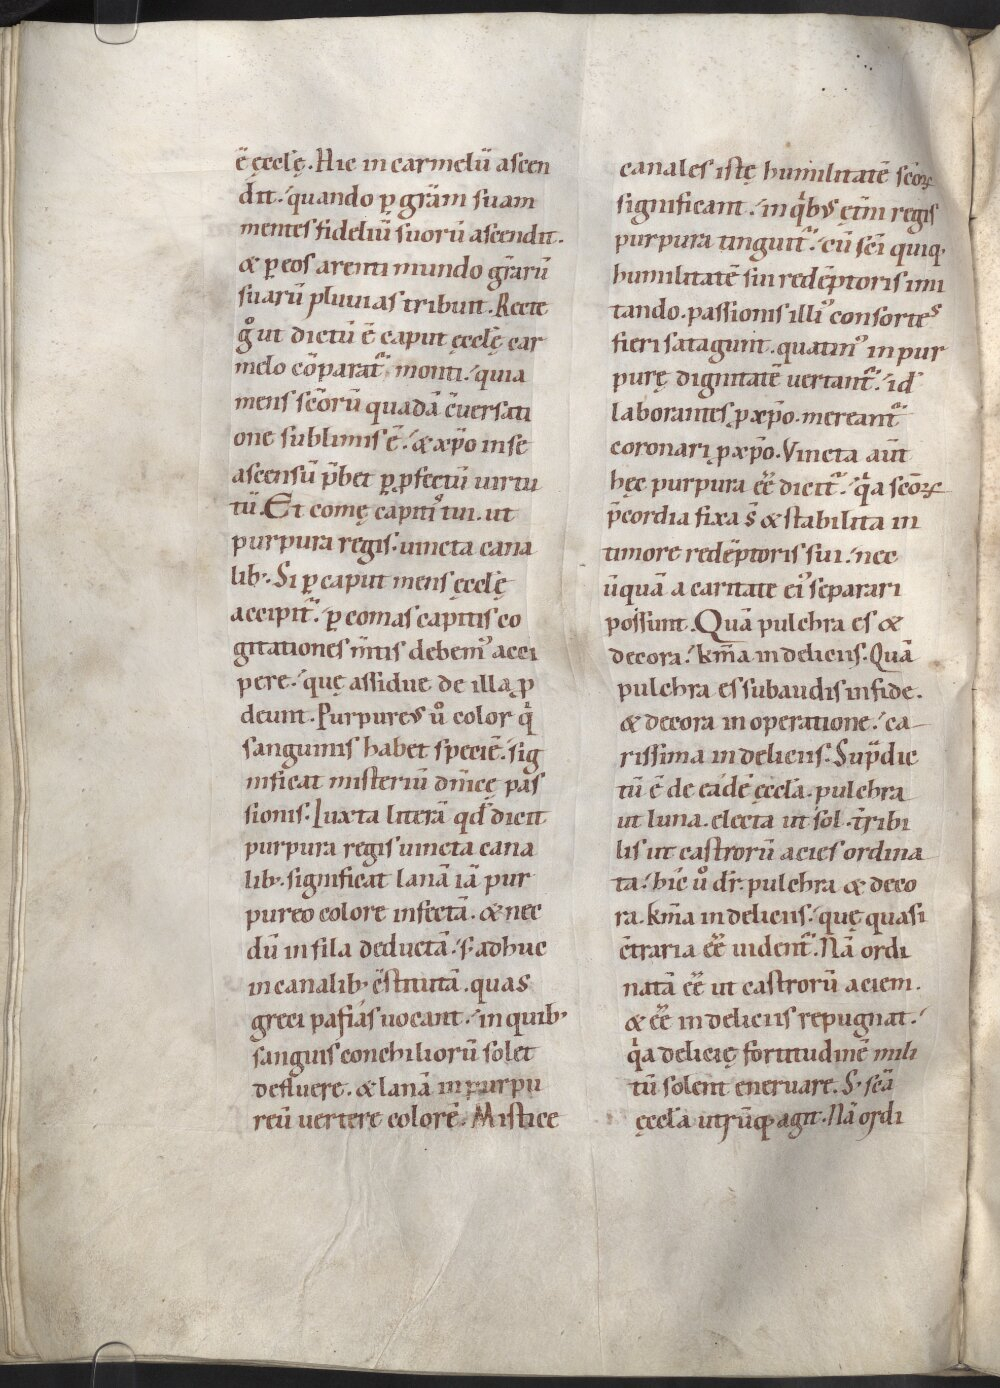 ē ęcclę̄. Hic in carmelū ascen
dit. quando ꝑ grām suam
mentes fideliū suorū ascendit.
& ꝑ eos arenti mundo grārū
suarū pluuias tribuit. Recte
gͦ ut dictū ē caput ęcclę̄ car
melo cōparatᷣ monti. quia
mens scōrū quadā cōuersati
one sublimis ē. & xp̄o in se
ascensū p̄bet ꝑ ꝓfectū uirtu
tū. Et comę capitiꝰ tui. ut
purpura regis. uincta cana
lib;. Si ꝑ caput mens ęcclę̄
accipitᷣ. ꝑ comas capitis co
gitationes m̄tis debemꝰ acci
pere. quę assidue de illa ꝓ
deunt. Purpureus ūo color qͥ
sanguinis habet speciē. sig
nificat misteriū dn̄icę pas
sionis. Iuxta literā qd̄ dicit
purpura regis uincta cana
lib;. significat lanā iā pur
pureo colore infectā. & nec
dū in fila deductā. s; adhuc
in canalib; cōstitutā. quas
greci pafiás uocant. in quib;
sanguis conchiliorū solet
defluere. & lanā in purpu
reū uertere colorē. Mistice
canales istę humilitatē scōꝝ
significant. in qͥbus ęti̅m regis
purpura tinguitᷣ. cū sc̄i quiq;
humilitatē sui redēptoris imi
tando. passionis illiꝰ consortes
fieri satagunt. quatinꝰ in pur
purę dignitatē uertantᷣ. id
laborantes ꝓ xp̄o. mereantᷣ
coronari ꝓ xp̄o. Vincta aūt
hęc purpura eē dicitᷣ. qͥa scōꝝ
p̄cordia fixa s̄ & stabilita in
timore redēptoris sui. nec
ūquā a caritate eiꝰ separari
possunt. Quā pulchra es &
decora. km̄a in deliciis. Quā
pulchra es subaudis in fide.
& decora in operatione. ca
rissima in deliciis. Sup̄dic
tū ē de eadē ęccl̄a. pulchra
ut luna. electa ut sol. t̄ribi
lis ut castrorū acies ordina
ta. hic ūo dr̄. pulchra & deco
ra. km̄a in deliciis. quę quasi
cōtraria eē uidentᷣ. Nā ordi
natā eē ut castrorū aciem.
& eē in deliciis repugnat.
qͥa delicię fortitudinē mili
tū solent eneruare. S; sc̄a
ęccl̄a utrūq; agit. Nā ordi